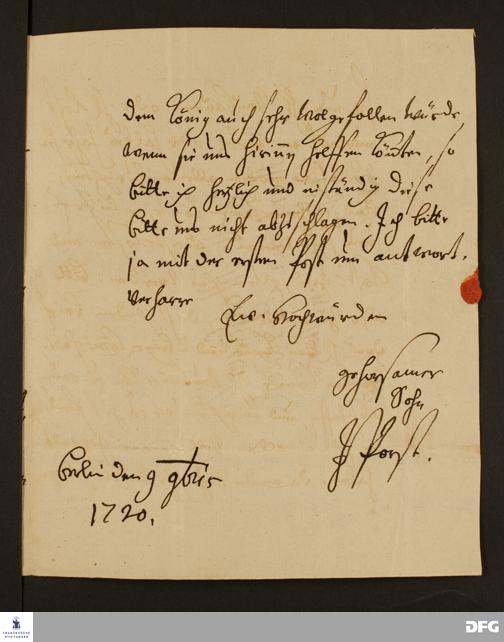 dem König auch sehr wolgefallen würde,
wenn sie uns hirinn helffen könten, so
bitte ich herzlich und inständig diese
bitte uns nicht abzuschlagen. Ich bitte
ja mit der ersten Post um antwort.
verharre
Ew. Hochwürden
gehorsamer
Sohn
J Porst.
Berlin den 9 9brs
1720.
FRANCKESCHE
STIFTUNGEN
DFG